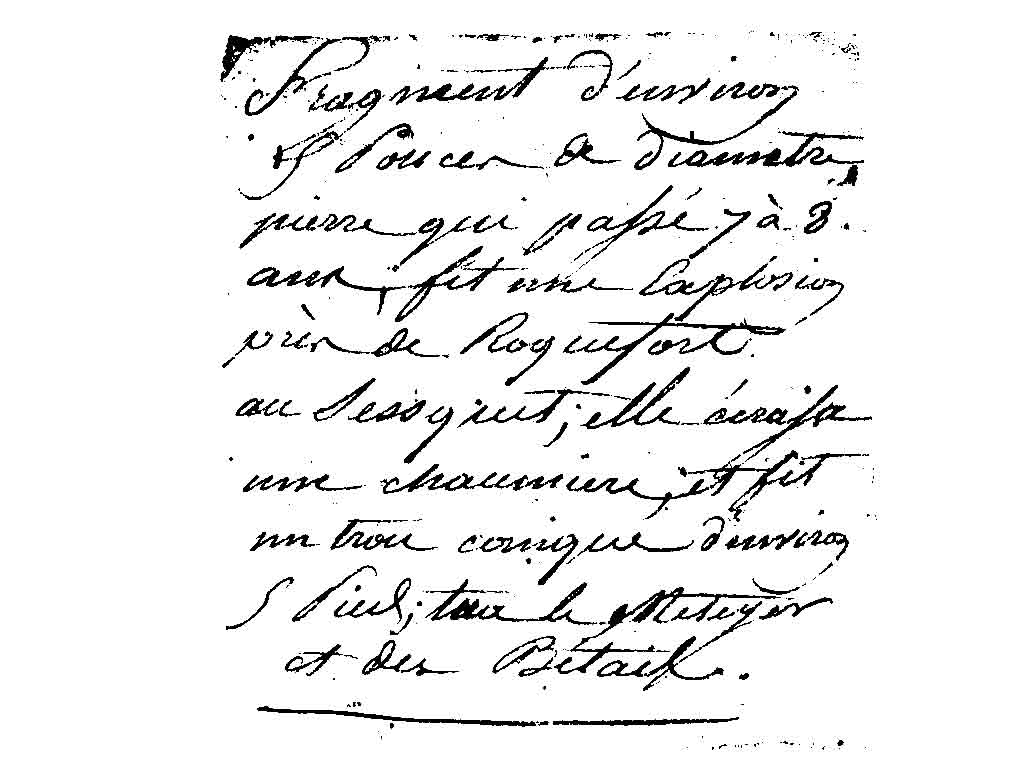 Fragment d'environ
15 Pouces de diametre
pierre qui passé 7 à 8.
ans, fit une Explosion
près de Roquefort
au Sessquet; elle écrasa
une chaumiere, et fit
un trou conique d'environ
5 Pieds; tua le Meteyer
et des Bétails.